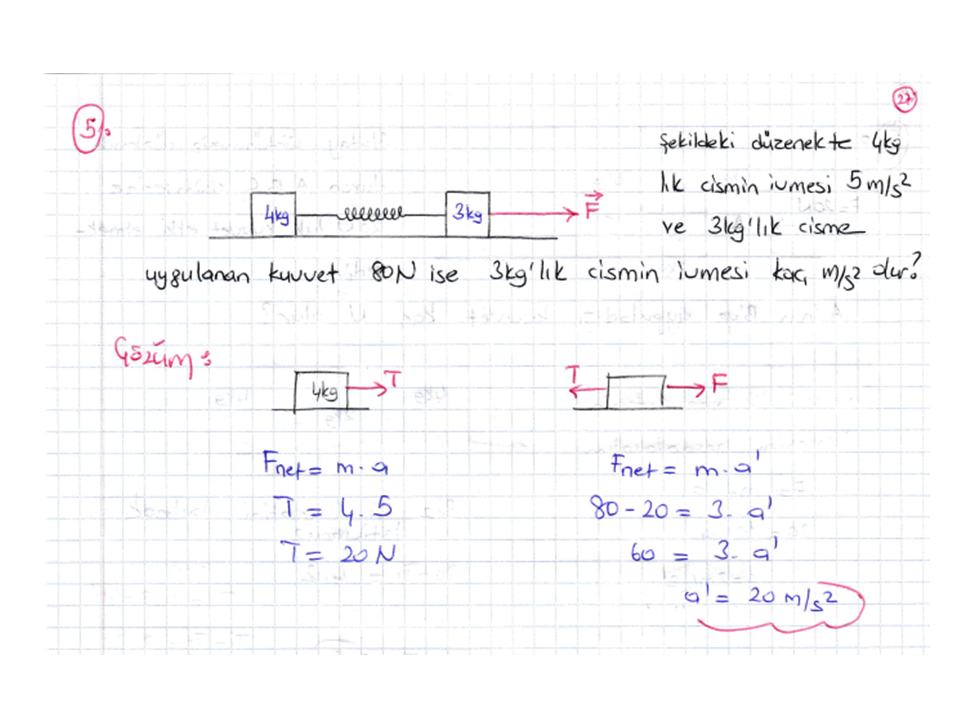 27
5.
Şekildeki düzenekte 4kg
lık cismin ivmesi 5 m/s²
4kg 3kg F
ve 3kg'lık cisme
uygulanan kuvvet 80N ise 3kg'lık cismin ivmesi kaç m/s² dir?
Çözüm:
4kg T
T F
Fnet = m.a
T = 4.5
T = 20N
Fnet = m.a'
80-20 = 3. a'
60 = 3. a'
a' = 20 m/s²